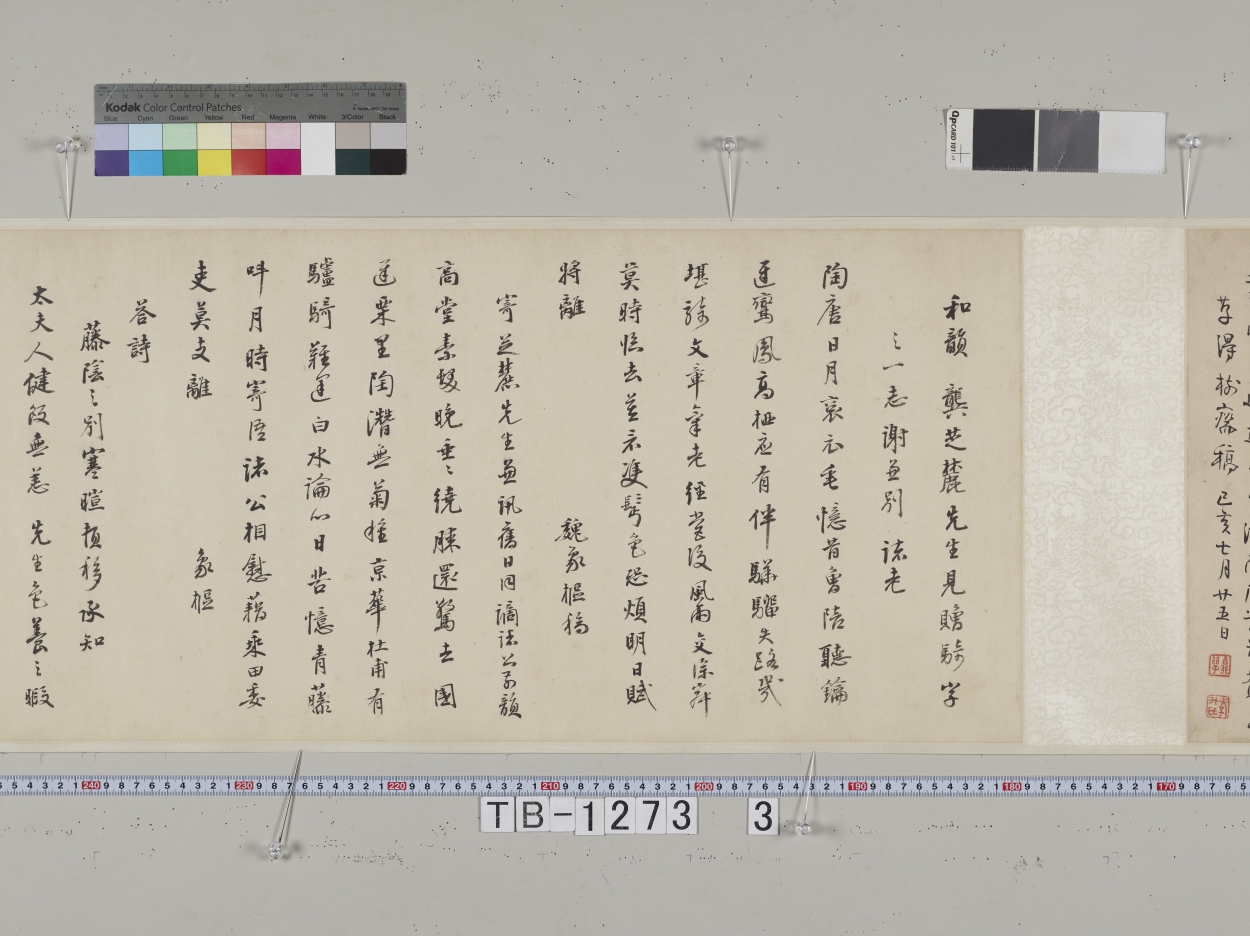 草得樹齋稿 己亥七月廿五日
和韻 龔芝麓先生見贈騎字
之一志謝並別諸老
陶唐日月衣憶昔曾陪聽鑰
遲鸞鳳高梧應有伴驊騮失路幾
堪騎文章老經營後風雨交深
莫時臨去並示雙髩色恐煩明日賦
將離 魏象樞稿
寄芝麓先生並訊舊日同謫諸公前韻
高堂素髮晚垂〻繞膝還驚去國
遲栗里陶潛無菊種京華杜甫有
驢騎難逢白水論心日苦憶青藤
呌月時寄語諸公相慰藉乘田委
吏莫支離 象樞
答詩
藤陰之別寒暄頓移承知
太夫人健飯無恙 先生色養之暇
Kodak Color Control Patches
Blue Cyan Green Yellow Red Magenta White 3/Color Black
QPCARD 101
240 230 220 210 200 190 180 170
TB-1273 3